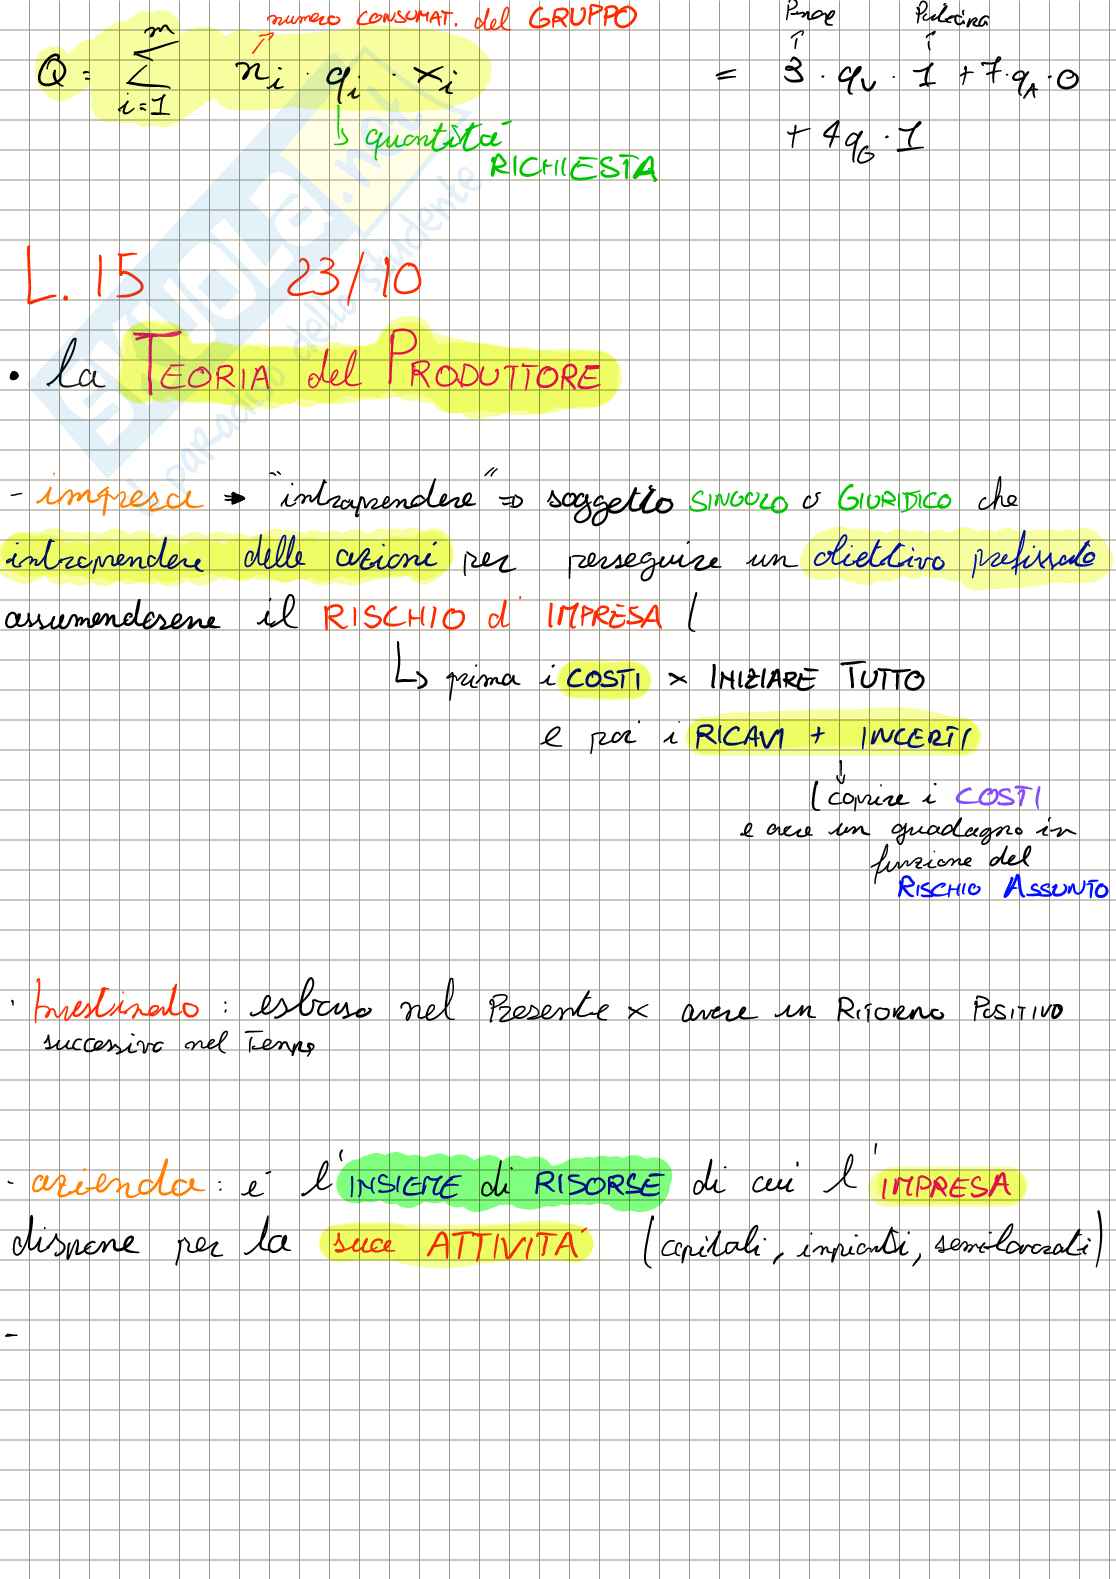 numero CONSUMAT. del GRUPPO
Q = m Σ i=1 ni · qi · xi = 3 · qV · 1 + 7 · qA · 0
↳ quantità + 4qG · 1
RICHIESTA
L. 15 23/10
• la TEORIA del PRODUTTORE
- impresa → "intraprendere" ⇒ soggetto SINGOLO o GIURIDICO che
intraprendere delle azioni per perseguire un obiettivo prefissato
assumendosene il RISCHIO d' IMPRESA (
↳ prima i COSTI × INIZIARE TUTTO
e poi i RICAVI + INCERTI
↓
( coprire i COSTI
e avere un guadagno in
funzione del
RISCHIO ASSUNTO
· : esborso nel Presente × avere un RITORNO POSITIVO
successivo nel Tempo
- azienda : è l'INSIEME di RISORSE di cui l'IMPRESA
dispone per la sua ATTIVITÀ (capitali, impianti, semilavorati)
-
SKUOLA.net
paradiso dello studente